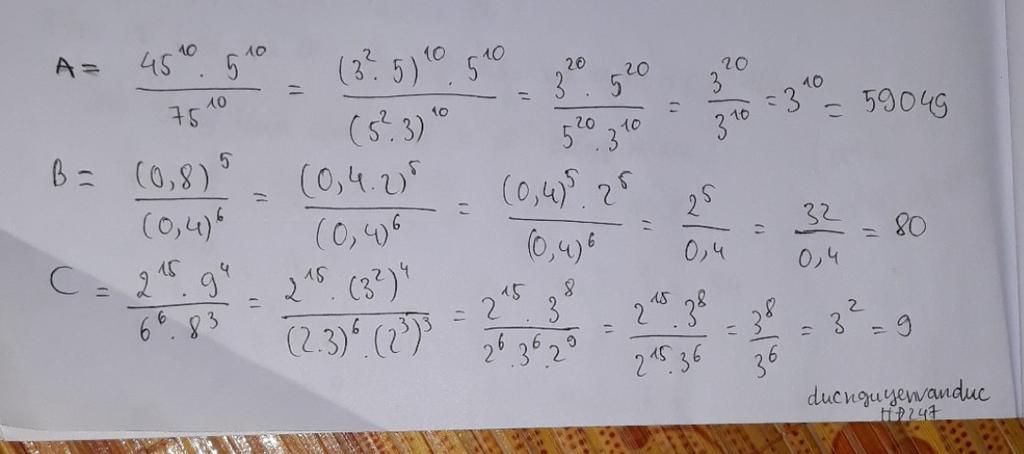 A = 45^10 . 5^10 / 75^10 = (3^2 . 5)^10 . 5^10 / (5^2 . 3)^10 = 3^20 . 5^20 / 5^20 . 3^10 = 3^20 / 3^10 = 3^10 = 59049
B = (0,8)^5 / (0,4)^6 = (0,4 . 2)^5 / (0,4)^6 = (0,4)^5 . 2^5 / (0,4)^6 = 2^5 / 0,4 = 32 / 0,4 = 80
C = 2^15 . 9^4 / 6^6 . 8^3 = 2^15 . (3^2)^4 / (2.3)^6 . (2^3)^3 = 2^15 . 3^8 / 2^6 . 3^6 . 2^9 = 2^15 . 3^8 / 2^15 . 3^6 = 3^8 / 3^6 = 3^2 = 9
ducnguyenvanduc
HP247